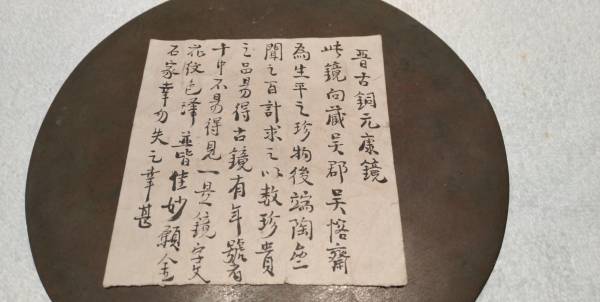 晉古銅元康鏡
此鏡向藏吳郡吳愙齋
為生平之珍物後端陶亝
聞之百計求之以數珍貴
之品易得古鏡有年號者
十中不易得見一是鏡字文
花紋色澤並皆佳妙願金
石家幸勿失之幸甚